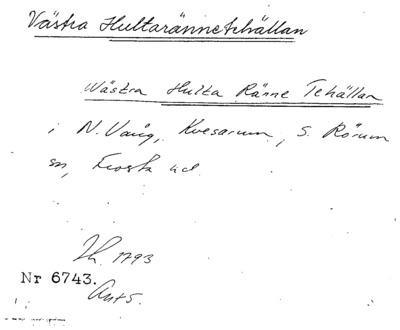 Västra Hultarännetehällan
Wästra Hulta Ränne Tehällan
i N. Vång, Kvesarum, S. Rörum
sn, Frosta hd.
Lh. 1793
Nr 6743.
Ant 5.